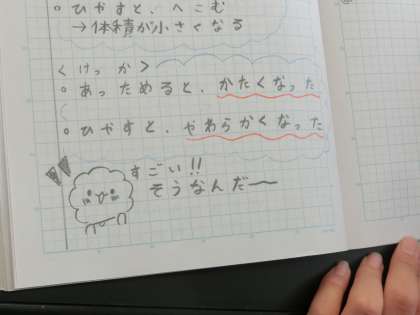 ○ ひやすと、へこむ
→体積が小さくなる
＜けっか＞
○ あっためると、かたくなった
○ ひやすと、やわらかくなった
すごい!!
そうなんだー